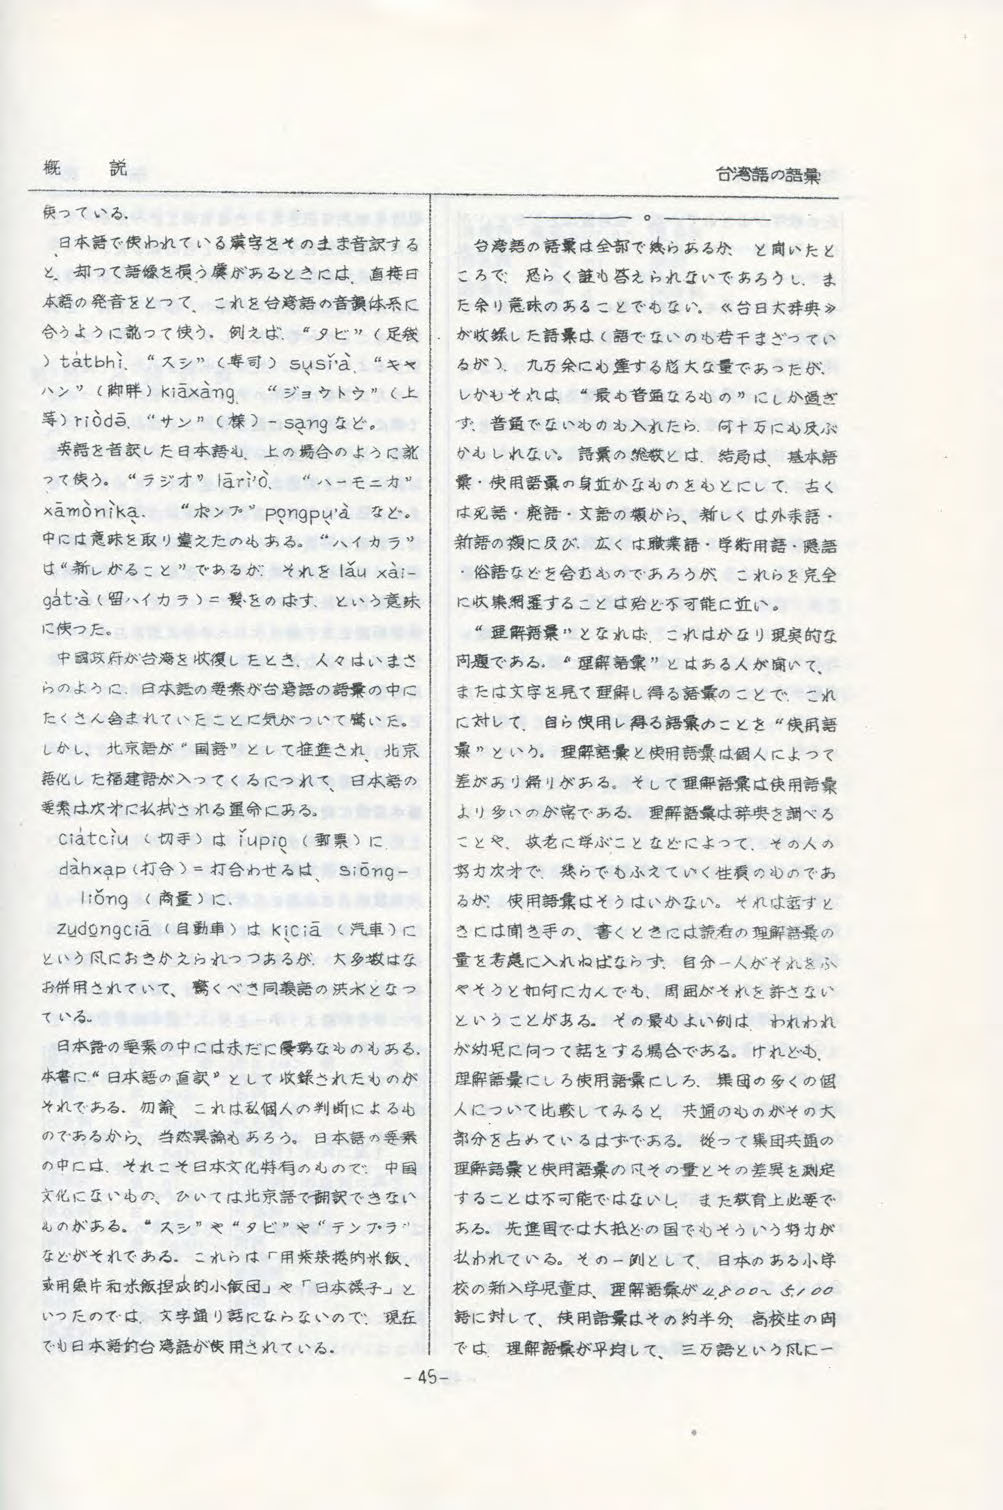 概　説
台湾語の語彙
使っている。
日本語で使われている漢字をそのまま音訳する
と、却つて語像を損う虞があるときには、直接日
本語の発音をとって、これを台湾語の音韻体系に
合うように訛って使う。例えば、“タビ”（足袋
）tátbhì、“スシ”（寿司）sụsǐ'à、“キャ
ハン”（脚絆）kiāxàng、“ジョウトウ”（上
等）riòdā、“サン”（様）-sạngなど。
英語を音訳した日本語も、上の場合のように訛
つて使う。“ラジオ”lāri'ò、“ハーモニカ”
xāmònikạ、“ポンプ”pọngpụ'à など。
中には意味を取り違えたのもある。“ハイカラ”
は“新しがること”であるが、それをlǎu xài-
gát·à（留ハイカラ）=髪をのばす、という意味
に使つた。
中國政府が台湾を收復したとき、人々はいまさ
らのように、日本語の要素が台湾語の語彙の中に
たくさん含まれていたことに気がついて驚いた。
しかし、北京語が“国語”として推進され、北京
語化した福建語が入ってくるにつれて、日本語の
要素は次才に払拭される運命にある。
ciátcìu（切手）は ǐupiọ（郵票）に
dàhxạp（打合）=打合わせるは、siōng-
liǒng（商量）に、
zụdọngciā（自動車）は kịciā（汽車）に
という風におきかえられつつあるが、大多数はな
お併用されていて、驚くべき同義語の洪水となつ
ている。
日本語の要素の中には未だに優勢なものもある。
本書に“日本語の直訳”として收録されたものが
それである。勿論、これは私個人の判断によるも
のであるから、当然異論もあろう。日本語の要素
の中には、それこそ日本文化特有のもので、中國
文化にないもの、ひいては北京語で翻訳できない
ものがある。“スシ”や“タビ”や“テンプラ”
などがそれである。これらは「用紫菜捲的米飯、
或用魚片和米飯捏成的小飯団」や「日本襪子」と
いったのでは、文字通り話にならないので、現在
でも日本語的台湾語が使用されている。
台湾語の語彙は全部で幾らあるか、と聞いたと
ころで、恐らく誰も答えられないであろうし、ま
た余り意味のあることでもない。≪台日大辞典≫
が收録した語彙は（語でないのも若干まざってい
るが）、九万余にも達する厖大な量であったが、
しかもそれは、“最も普通なるもの”にしか過ぎ
ず、普通でないものも入れたら、何十万にも及ぶ
かもしれない。語彙の総数とは、結局は、基本語
彙・使用語彙の身近かなものをもとにして、古く
は死語・廃語・文語の類から、新しくは外来語・
新語の類に及び、広くは職業語・学術用語・隠語
・俗語などを含むものであろうが、これらを完全
に收集網羅することは殆ど不可能に近い。
“理解語彙”となれば、これはかなり現実的な
問題である。“理解語彙”とはある人が聞いて、
または文字を見て理解し得る語彙のことで、これ
に対して、自ら使用し得る語彙のことを“使用語
彙”という。理解語彙と使用語彙は個人によって
差があり偏りがある。そして理解語彙は使用語彙
より多いのが常である。理解語彙は辞典を調べる
ことや、故老に学ぶことなどによって、その人の
努力次才で、幾らでもふえていく性質のものであ
るが、使用語彙はそうはいかない。それは話すと
きには聞き手の、書くときには読者の理解語彙の
量を考慮に入れねばならず、自分一人がそれをふ
やそうと如何に力んでも、周囲がそれを許さない
ということがある。その最もよい例は、われわれ
が幼児に向つて話をする場合である。けれども、
理解語彙にしろ使用語彙にしろ、集団の多くの個
人について比較してみると、共通のものがその大
部分を占めているはずである。従って集団共通の
理解語彙と使用語彙の凡その量とその差異を測定
することは不可能ではないし、また教育上必要で
ある。先進国では大抵どの国でもそういう努力が
払われている。その一例として、日本のある小学
校の新入学児童は、理解語彙が4,800〜5,100
語に対して、使用語彙はその約半分、高校生の間
では、理解語彙が平均して、三万語という風に一
-45-